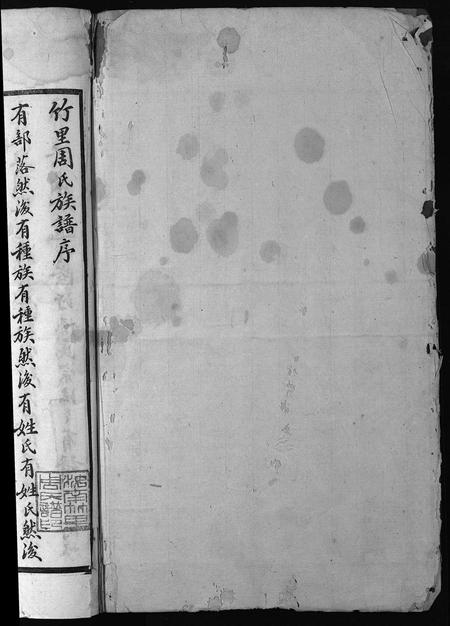 竹里周氏族譜序
有部落然後有種族有種族然後有姓氏有姓氏然後